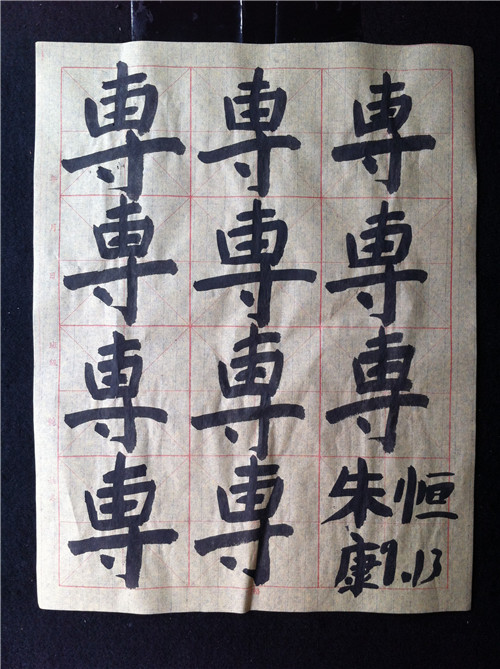 専専専
専専専
専専専
専専朱恒
康9.13